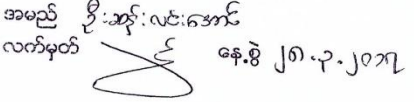 အမည် ဦးဆန်းလင်းအောင်
လက်မှတ် နေ့စွဲ ၂၈.၃.၂၀၁၇